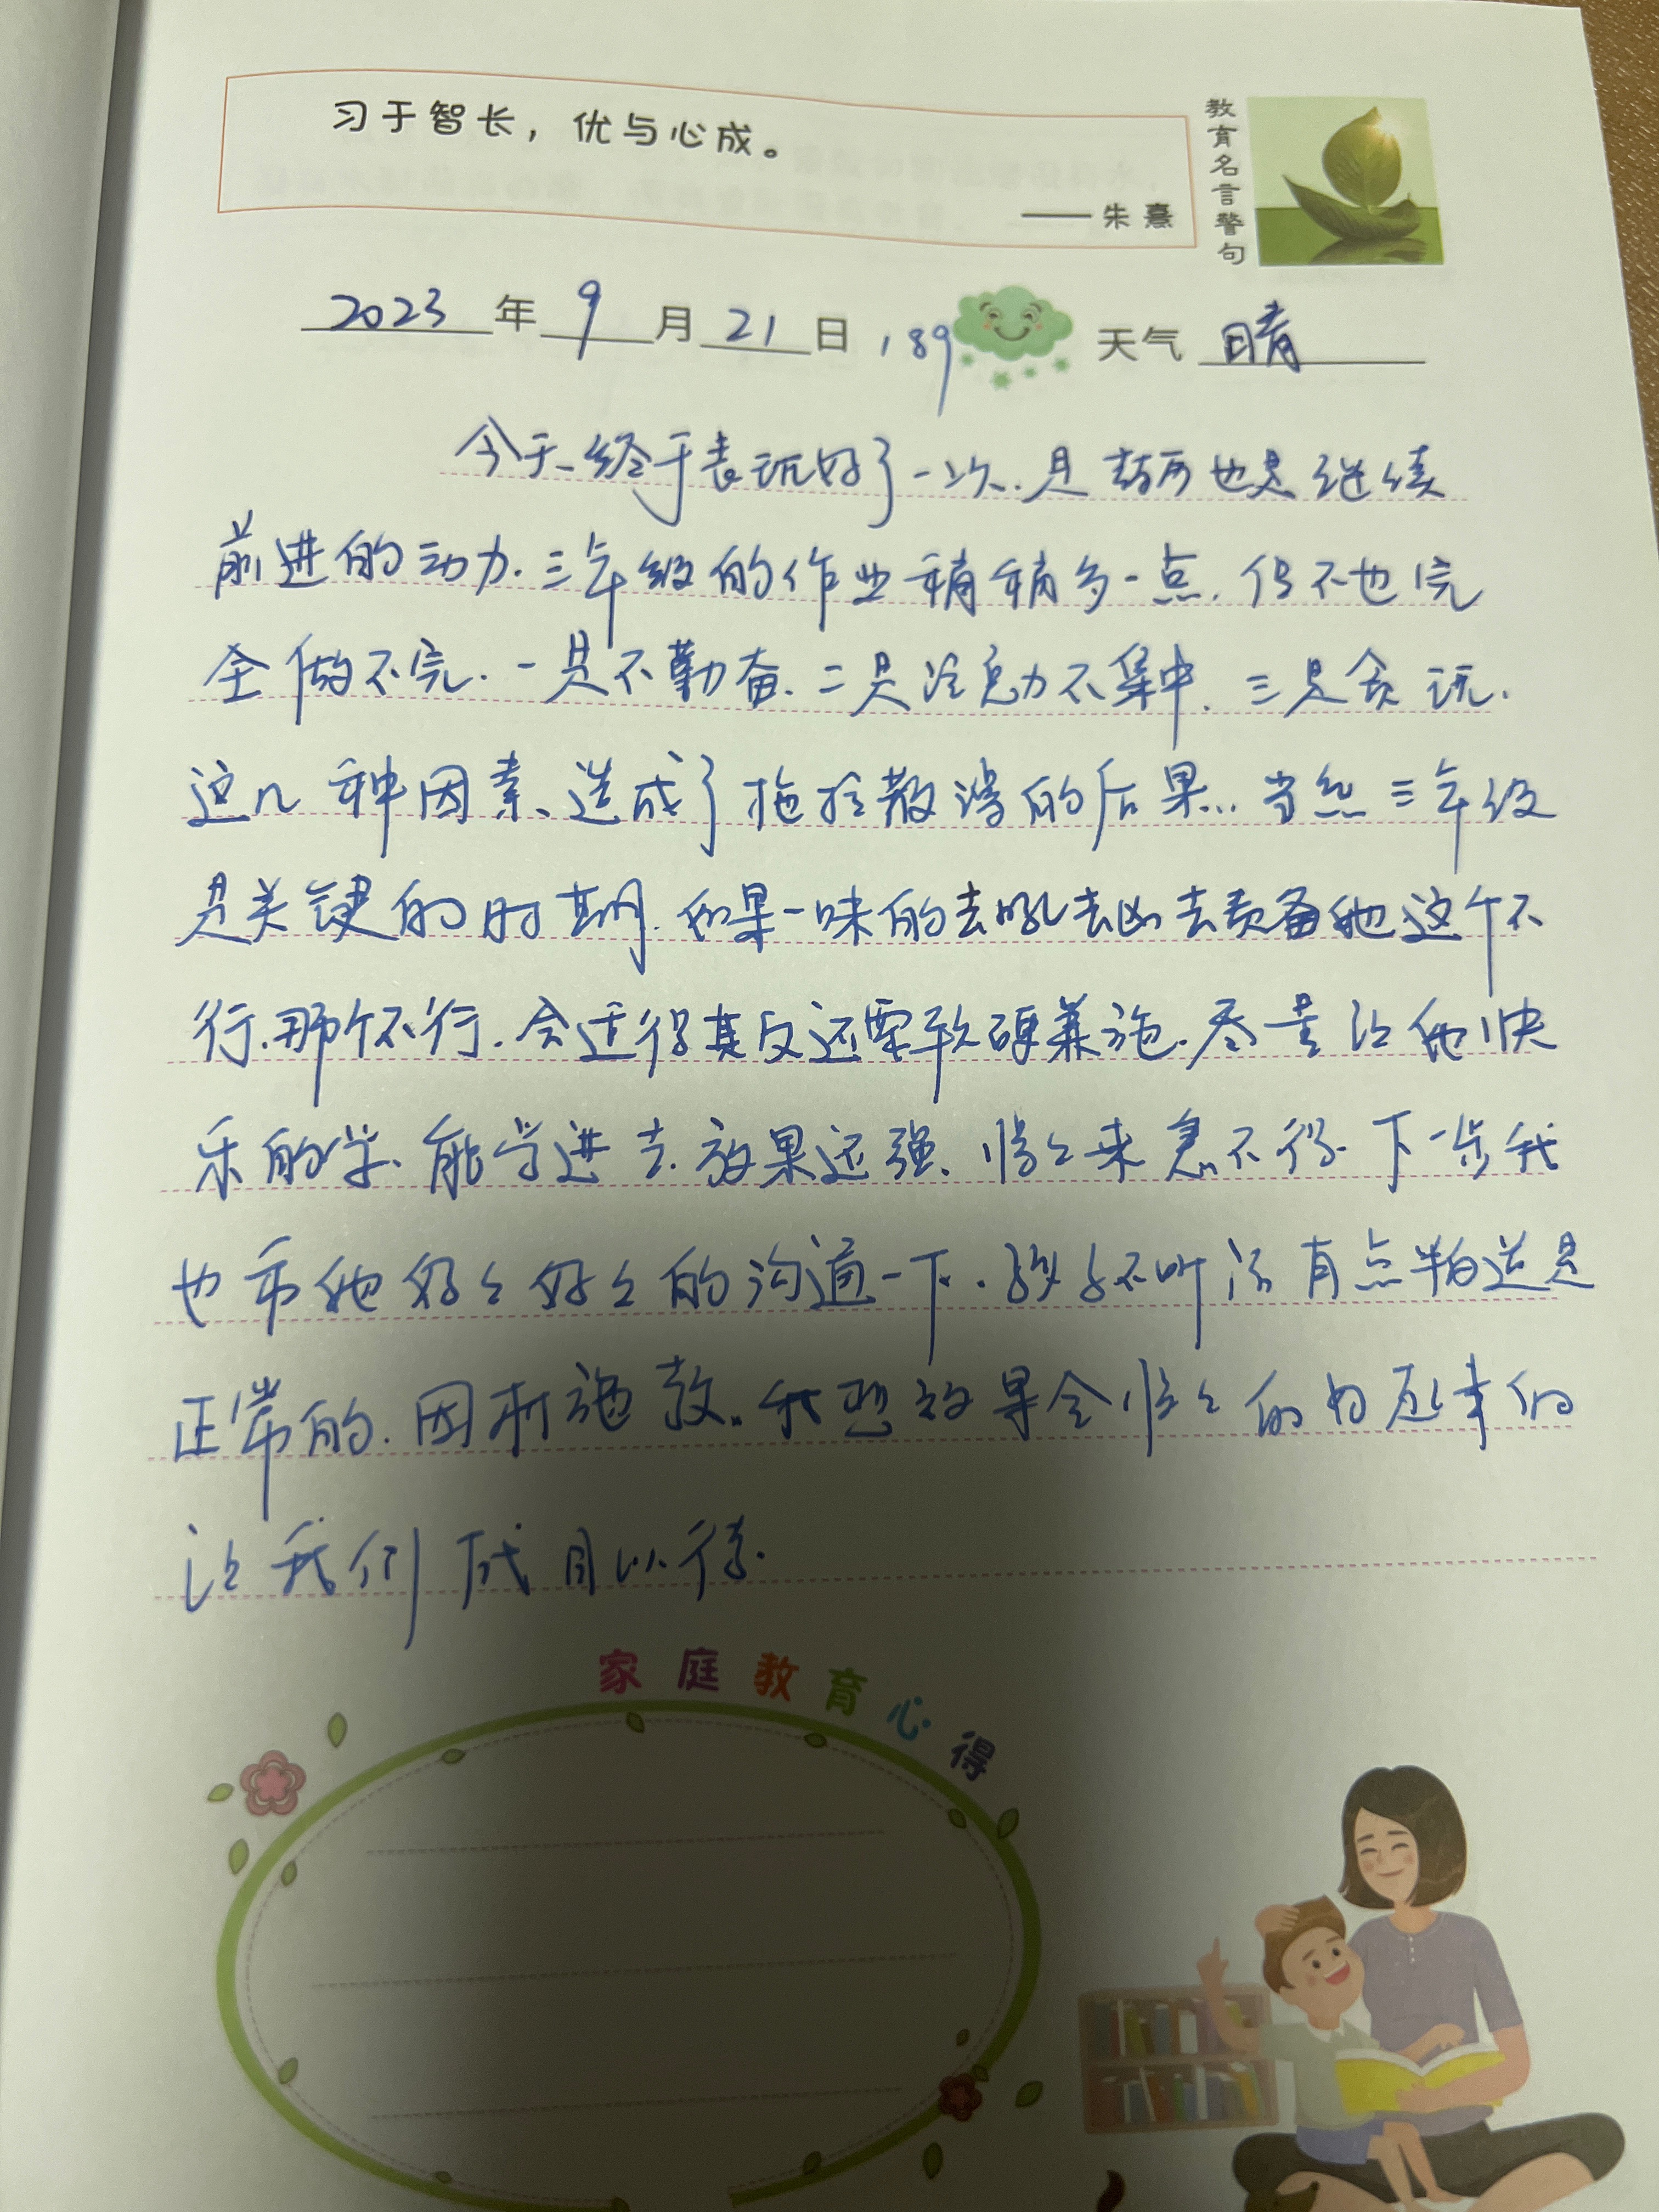 习于智长，优与心成。
——朱熹
教育名言警句
2023年9月21日 189 天气 晴
今天终于表现好了一次.是鼓励也是继续
前进的动力.三年级的作业稍稍多一点.但不也完
全做不完.一是不勤奋.二是注意力不集中.三是贪玩.
这几种因素、造成了拖拉散漫的后果..当然三年级
是关键的时期.如果一味的去吼去凶去责备他这个不
行.那个不行.会适得其反还要软硬兼施.尽量让他快
乐的学.能学进去.效果还强.慢々来急不得.下一步我
也和他好々好々的沟通一下.孩子不听话有点叛逆是
正常的.因材施教.我想效果会慢々的 来的
让我们 目以待.
家庭教育心得